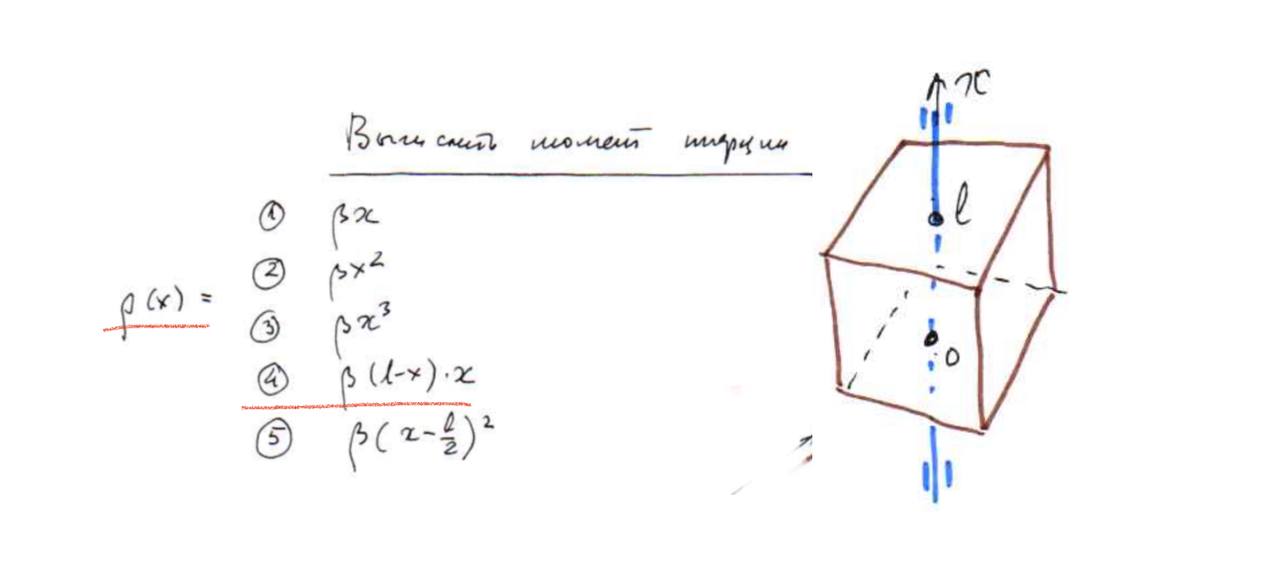 Вычислить момент инерции
ρ(x) =
① βx
② βx²
③ βx³
④ β(l-x)·x
⑤ β(x-l/2)²
x
l
0